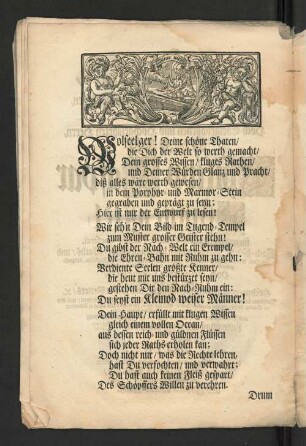 Wolseelger! Deine schöne Thaten/
die Dich der Welt so werth gemacht/
Dein grosses Wissen/ kluges Rathen/
und Deiner Würden Glanz und Pracht/
diß alles wäre werth gewesen/
in dem Porphyr- und Marmor-Stein
gegraben und geprägt zu seyn:
Hier ist nur der Entwurf zu lesen!
Wir seh'n Dein Bild im Tugend-Tempel
zum Muster grosser Geister stehn:
Du gibst der Nach-Welt ein Exempel/
die Ehren-Bahn mit Ruhm zu gehn:
Verdienter Seelen größte Kenner/
die heut mit uns bestürzet seyn/
gestehen Dir den Nach-Ruhm ein:
Du seyst ein Kleinod weiser Männer!
Dein Haupt/ erfüllt mit klugen Wissen
gleich einem vollen Ocean/
aus dessen reich- und güldnen Flüssen
sich jeder Raths erholen kan:
Doch nicht nur/ was die Rechte lehren,
hast Du verfochten/ und verwahrt:
Du hast auch keinen Fleiß gespart/
Des Schöpffers Willen zu verehren.
Drum